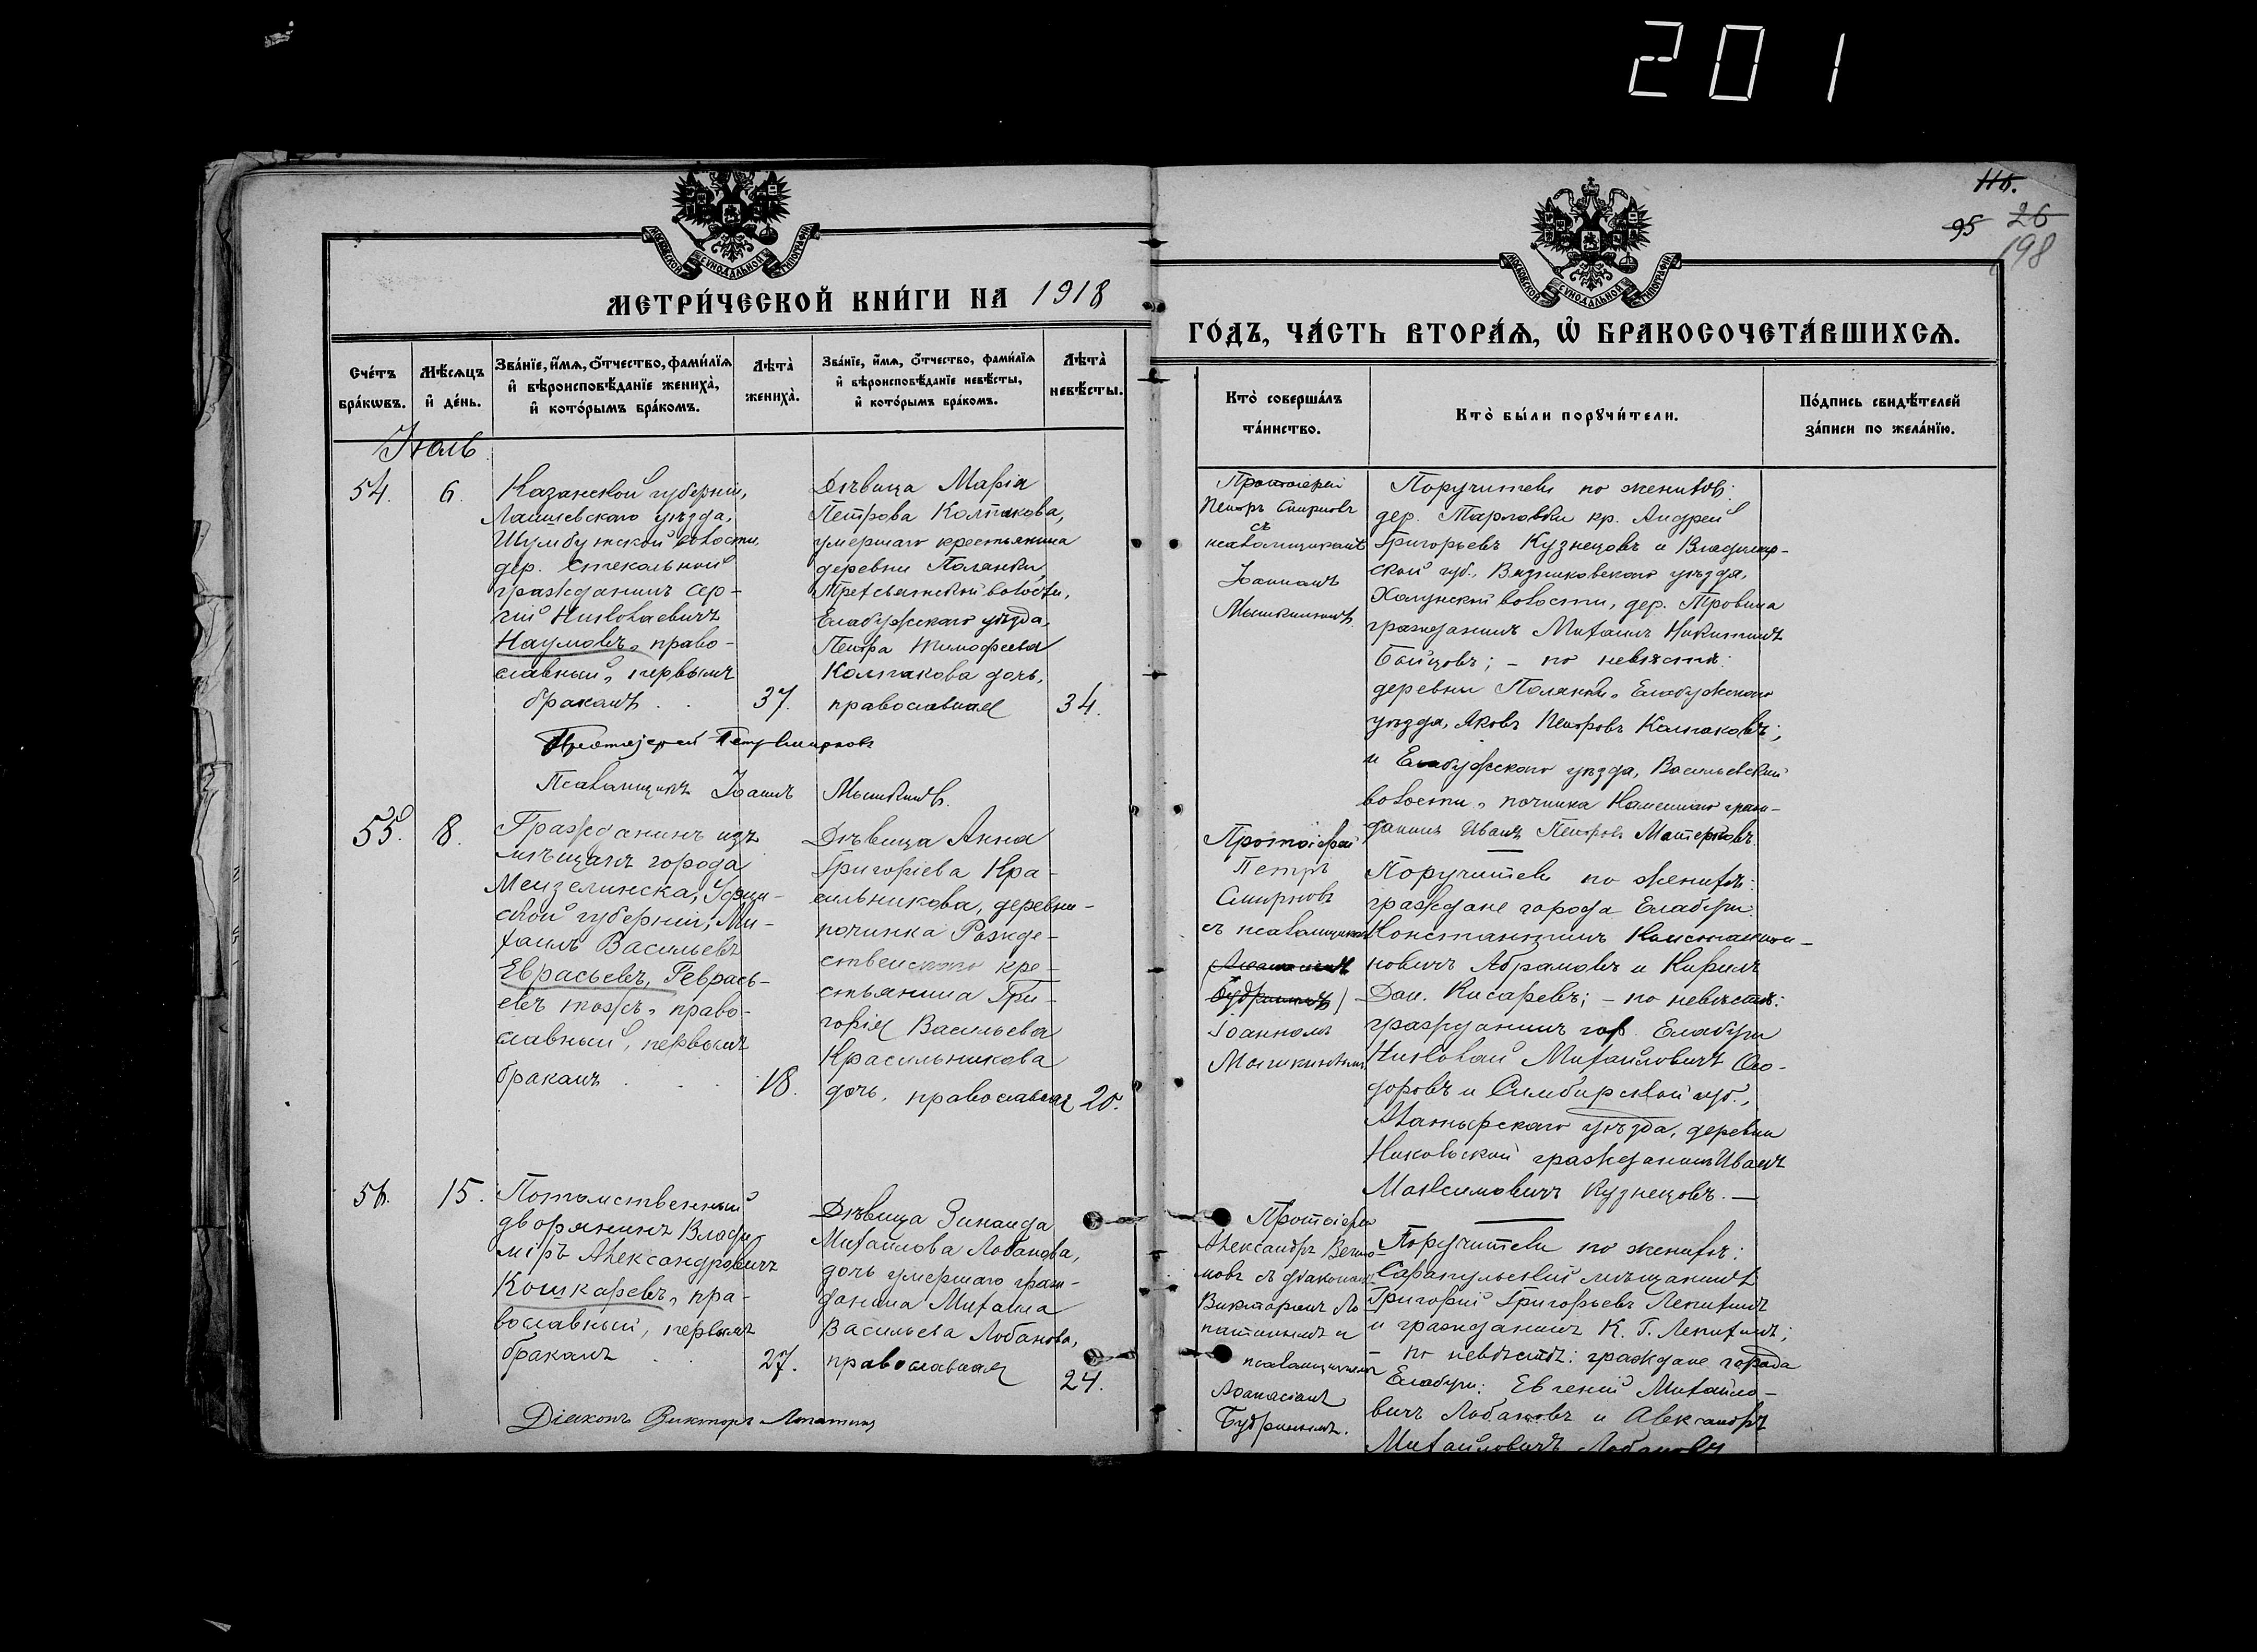 201
116.
95 26
198
МОСКОВСКОЙ СѴНОДАЛЬНОЙ ТИПОГРАФІИ
МОСКОВСКОЙ СѴНОДАЛЬНОЙ ТИПОГРАФІИ
МЕТРИ́ЧЕСКОЙ КНИ́ГИ НА 1918
ГО́ДЪ, ЧА́СТЬ ВТОРА́Ѧ, Ѡ҆ БРАКОСОЧЕТА́ВШИХСѦ.
Счéтъ бра́кѡвъ.
Мѣ́сѧцъ и҆ де́нь.
Зва́нїе, и҆́мѧ, ѻ҆́тчество, фами́лїѧ
и҆ вѣроисповѣ́данїе жениха̀,
и҆ кото́рымъ бра́комъ.
Лѣта̀ жениха̀.
Зва́нїе, и҆́мѧ, ѻ҆́тчество, фами́лїѧ
и҆ вѣроисповѣ́данїе невѣ́сты,
и҆ кото́рымъ бра́комъ.
Лѣта̀ невѣ́сты.
Кто̀ соверша́лъ та́инство.
Кто̀ бы́ли порꙋчи́тели.
По́дпись свидѣ́телей
за́писи по жела́нїю.
Іюль
54. 6.
Казанской губерніи,
Лаишевскаго уѣзда,
Шумбутской волости,
дер. Стекольной
гражданинъ Сер-
гій Николаевичъ
Наумовъ, право-
славный, первымъ
бракомъ . . 37.
Дѣвица Марія
Петрова Колпакова,
умершаго крестьянина
деревни Полянки,
Трехсвятской волости,
Елабужскаго уѣзда,
Петра Тимофеева
Колпакова дочь,
православная 34.
Протоіерей Петръ Смирновъ
Псаломщикъ Іоаннъ Мышкинъ.
Протоіерей
Петръ Смирновъ
съ
псаломщикомъ
Іоанномъ
Мышкинымъ.
Поручители по женихѣ:
дер. Тарловки кр. Андрей
Григорьевъ Кузнецовъ и Владимир-
ской губ., Вязниковскаго уѣзда,
Холуйской волости, дер.
гражданинъ Михаилъ Никитинъ
Бойцовъ; – по невѣстѣ:
деревни Полянки, Елабужскаго
уѣзда, Яковъ Петровъ Колпаковъ;
и Елабужскаго уѣзда, Васильевской
волости, починка граж-
данинъ Иванъ Петровъ
55. 8.
Гражданинъ изъ
мѣщанъ города
Мензелинска, Уфим-
ской губерніи, Ми-
хаилъ Васильевъ
Еврасьевъ, Геврась-
евъ тожъ, право-
славный, первымъ
бракомъ . . . 18.
Дѣвица Анна
Григоріева Кра-
сильникова, деревни-
починка Рожде-
ственскаго кре-
стьянина Гри-
горія Васильева
Красильникова
дочь, православная 20.
Протоіерей
Петръ
Смирновъ
съ псаломщикомъ
Іоанномъ
Мышкинымъ
Поручители по женихѣ:
граждане города Елабуги
Константинъ Константи-
новичъ Абрамовъ и Кирилъ
Дан. Писаревъ; – по невѣстѣ:
гражданинъ гор. Елабуги
Николай Михайловичъ Ѳео-
доровъ и Симбирской губ.,
Алатырскаго уѣзда, деревни
Никольской гражданинъ Иванъ
Максимовичъ Кузнецовъ. —
56. 15.
Потомственный
дворянинъ Влади-
міръ Александровичъ
Кошкаревъ, пра-
вославный, первымъ
бракомъ . . 27.
Дѣвица Зинаида
Михайлова Лобанова,
дочь умершаго граж-
данина Михаила
Васильева Лобанова,
православная 24.
Діаконъ Викторъ Лопатинъ
Протоіерей
Александръ
съ діакономъ
Викторомъ Ло-
патинымъ и
псаломщикомъ
Аѳанасіемъ
Будринымъ.
Поручители по женихѣ:
Сарапульскій мѣщанинъ
Григорій Григорьевъ Лепихинъ
и гражданинъ К. Г. Лепихинъ;
по невѣстѣ: граждане города
Елабуги: Евгеній Михайло-
вичъ Лобановъ и Александръ
Михайловичъ Лобановъ